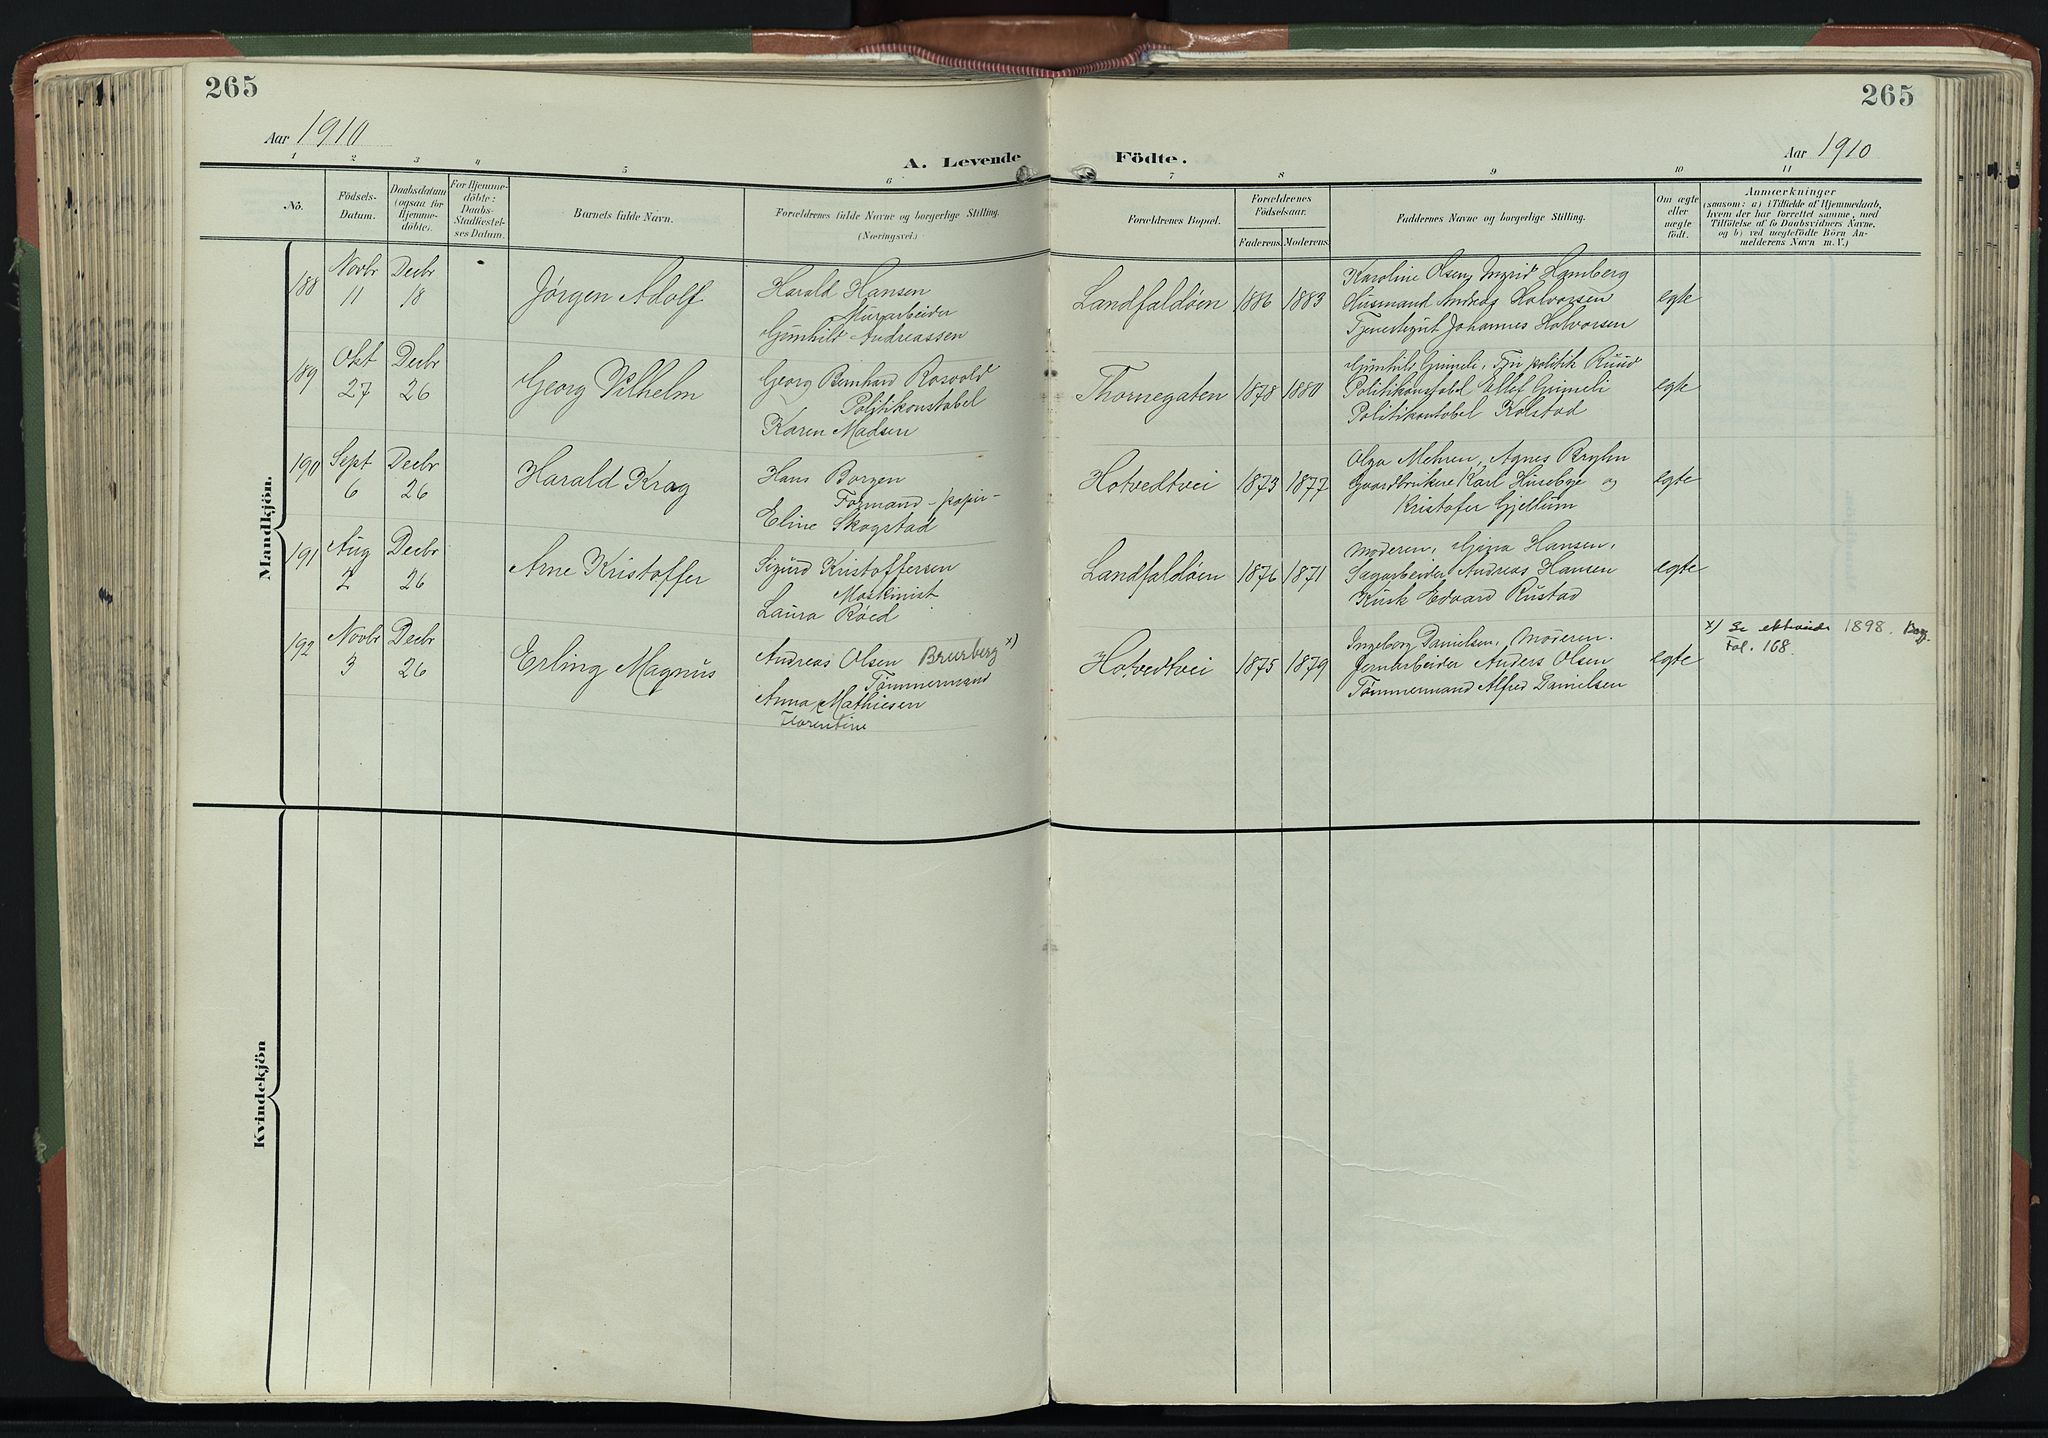 265
265
Aar 1910
A. Levende Födte.
Aar 1910
1 2 3 4 5 6 7 8 9 10 11
No.
Födsels-
Datum.
Daabsdatum
(ogsaa for
Hjemme-
döbte).
For Hjemme-
döbte:
Daabs-
Stadfæstel-
ses Datum.
Barnets fulde Navn.
Forældrenes fulde Navne og borgerlige Stilling.
(Næringsvei.)
Forældrenes Bopæl.
Forældrenes
Födselsaar.
Faderens. Moderens.
Faddernes Navne og borgerlige Stilling.
Om ægte
eller
uægte
födt.
Anmærkninger
(saasom: a) i Tilfælde af Hjemmedaab,
hvem der har forrettet samme, med
Tilföielse af to Daabsvidners Navne,
og b) ved uægtefödte Börn An-
melderens Navn m. V.)
Mandkjön.
188
Novbr
11
Decbr
18
Jørgen Adolf
Harald Hansen
Murarbeider
Gunhild Andreassen
Landfaldøen
1886
1883
Karoline Olsen, Ingrid Hamberg
Husmand Andreas Halvorsen
Tjenestegut Johannes Halvorsen
egte
189
Okt
27
Decbr
26
Georg Vilhelm
Georg Bernhard Rosvold
Politikonstabel
Karen Madsen
Thornegaten
1878
1880
Gunhild Grimeli, politik Ruud
Politikonstabel Ellef Grimeli
Politikontabel Kolstad
egte
190
Sept
6
Decbr
26
Harald Krag
Hans Borgen
Formand - papir-
Eline Skogstad
Hotvedtvei
1873
1877
Olga Mehren, Agnes Bryhn
Gaardbrukere Karl Huseby og
Kristofer Gjellum
egte
191
Aug
2
Decbr
26
Arne Kristoffer
Sigurd Kristoffersen
Maskinist
Laura Røed
Landfaldøen
1876
1871
Moderen, Gina Hansen,
Sagarbeider Andreas Hansen
Kusk Edvard Rustad
egte
192
Novbr
3
Decbr
26
Erling Magnus
Andreas Olsen Brurberg x)
Tømmermand
Anna Mathiesen
Florentine
Hotvedtvei
1875
1879
Ingeborg Danielsen, Moderen.
Jernarbeider Anders Olsen
Tømmermand Alfred Danielsen
egte
x) Se 1898.
Fol. 168.
Kvindekjön